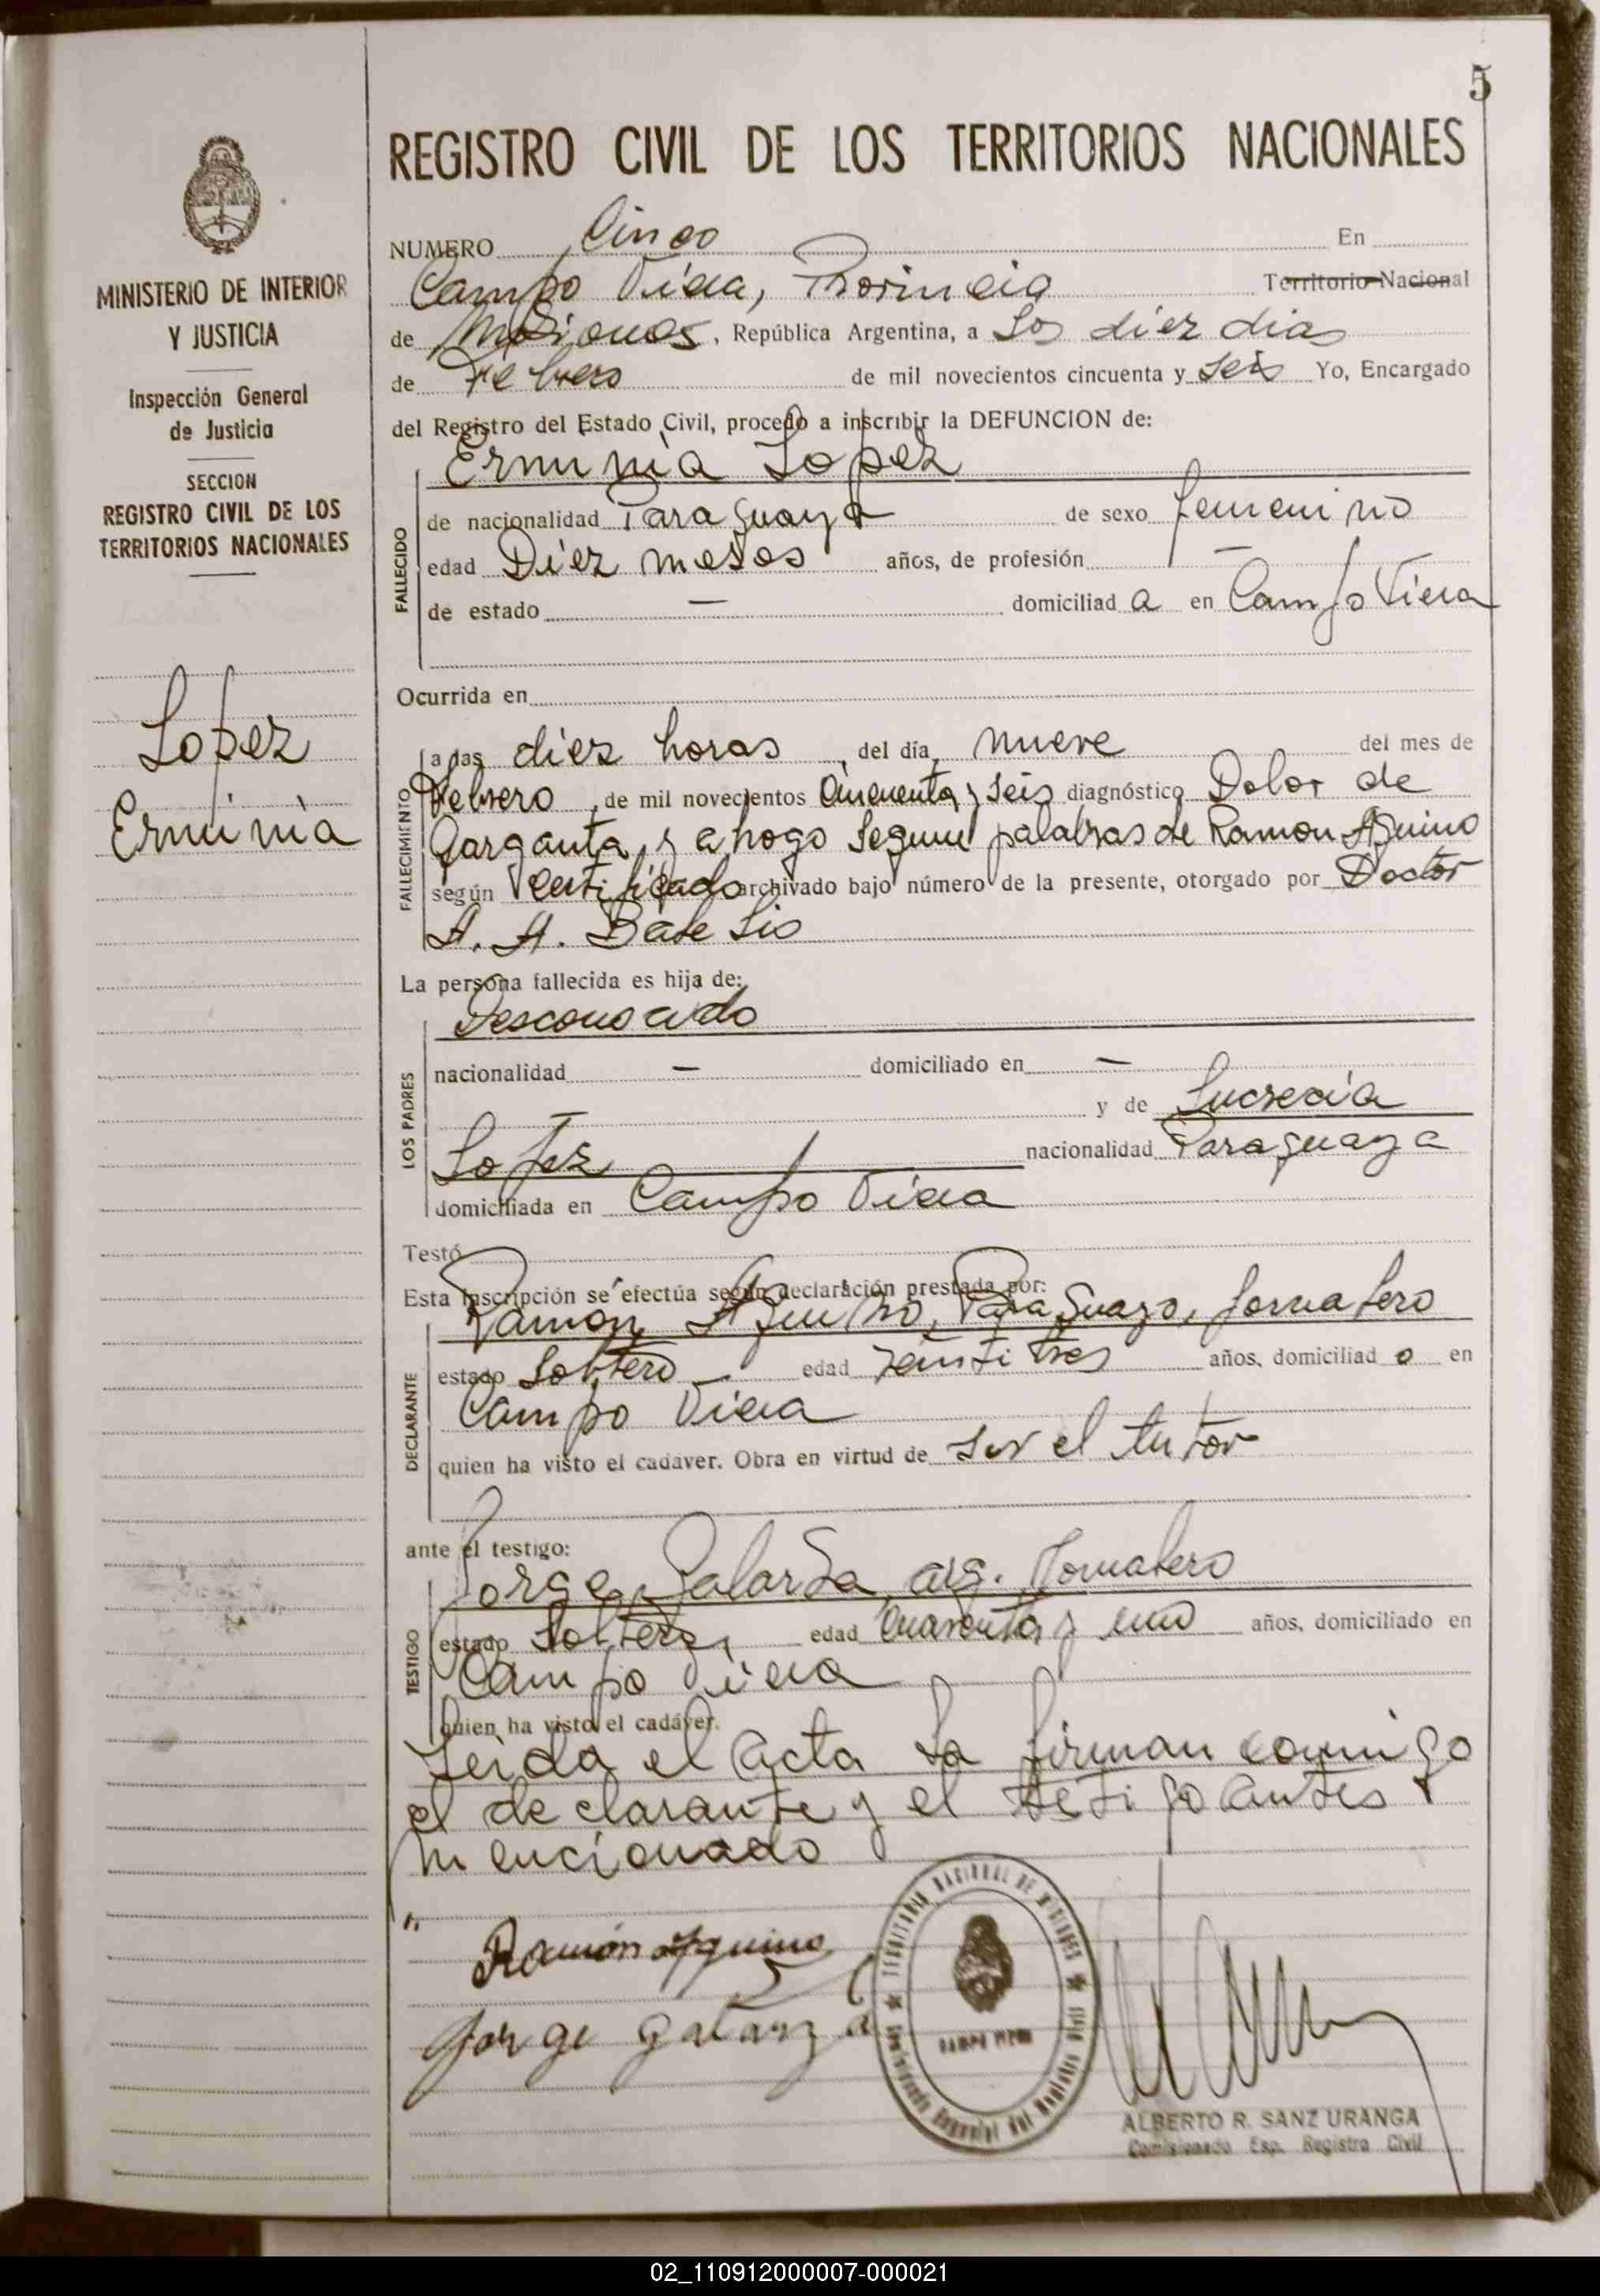 5
REGISTRO CIVIL DE LOS TERRITORIOS NACIONALES
MINISTERIO DE INTERIOR
Y JUSTICIA
Inspección General
de Justicia
SECCION
REGISTRO CIVIL DE LOS
TERRITORIOS NACIONALES
Lopez
Erminia
NUMERO Cinco En
Campo Viera, Provincia Territorio Nacional
de Misiones, República Argentina, a los diez dias
de Febrero de mil novecientos cincuenta y seis Yo, Encargado
del Registro del Estado Civil, procedo a inscribir la DEFUNCION de:
Erminia Lopez
FALLECIDO
de nacionalidad Paraguaya de sexo femenino
edad Diez meses años, de profesión —
de estado — domiciliad a en Campo Viera
Ocurrida en
FALLECIMIENTO
a las diez horas, del día, nueve del mes de
Febrero, de mil novecientos Cincuenta y seis diagnóstico Dolor de
Garganta y ahogo segun palabras de Ramon Aquino
según certificado archivado bajo número de la presente, otorgado por Doctor
A. A.
La persona fallecida es hija de:
Desconocido
LOS PADRES
nacionalidad — domiciliado en —
y de Lucrecia
Lopez nacionalidad Paraguaya
domiciliada en Campo Viera
Testó
Esta inscripción se efectúa según declaración prestada por:
Ramon Aquino, Paraguayo, Jornalero
DECLARANTE
estado Soltero edad veinti tres años, domiciliad o en
Campo Viera
quien ha visto el cadáver. Obra en virtud de ser el tutor
ante el testigo:
Jorge Galarza arg. Jornalero
TESTIGO
estado Soltero, edad cuarenta y uno años, domiciliado en
Campo Viera
quien ha visto el cadáver.
Leida el acta la firman comigo
el declarante y el testigo antes
mencionado
Ramón Aquino
Jorge Galarza
TERRITORIO NACIONAL DE MISIONES
CAMPO VIERA
Comisionado Especial del Registro Civil
ALBERTO R. SANZ URANGA
Comisionado Esp. Registro Civil
02_110912000007-000021